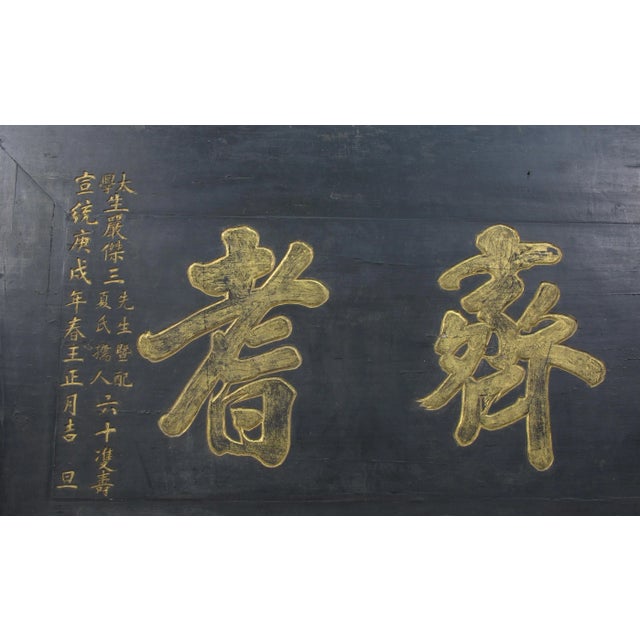 齊
耆
大學生嚴傑三先生暨配夏氏孺人六十雙壽
宣統庚戌年春王正月吉旦